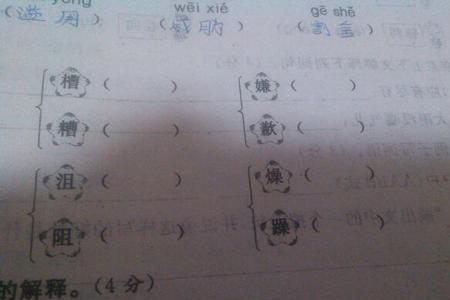 yòng wēi xié gē shě
(滥用) (威胁) (割舍)
槽( ) 嫌( )
糟( ) 歉( )
沮( ) 燥( )
阻( ) 躁( )
的解释。(4分)